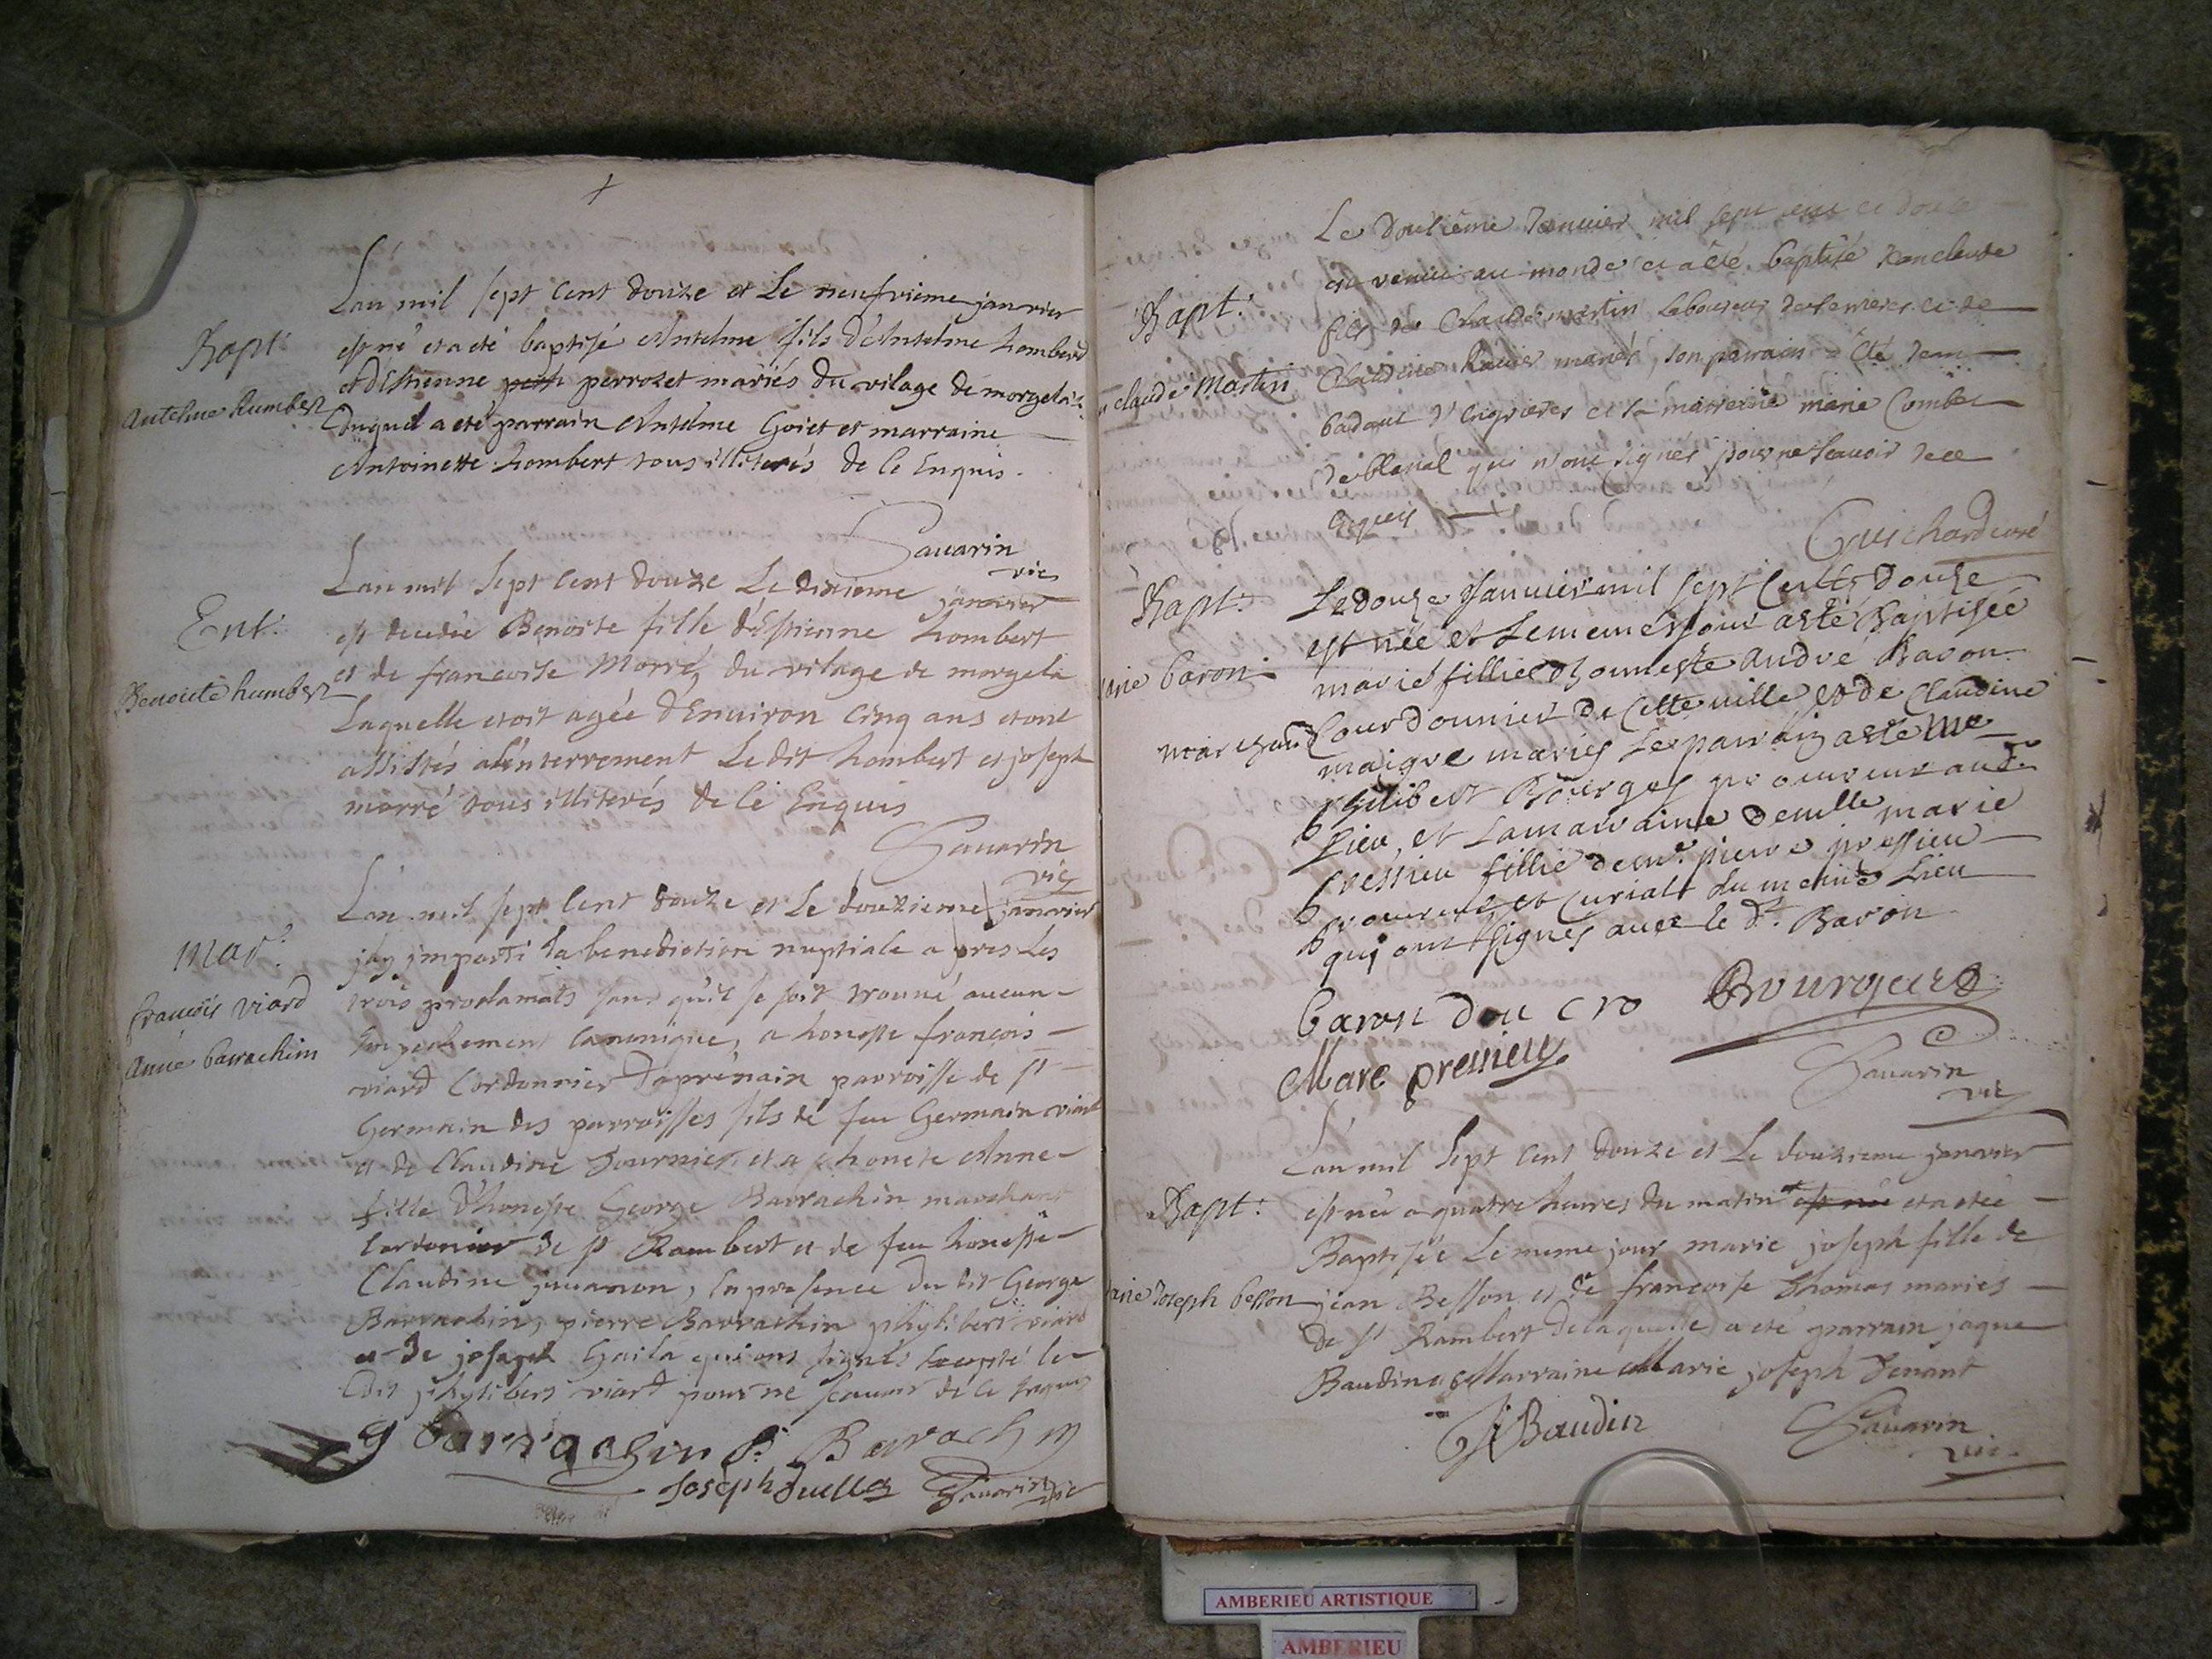 Lan mil sept cent douze et Le neufvieme janvier
Bapt:
est né et a eté baptisé Antelme fils d'Antelme hombert
Antelme humbert
et d'Estienne perrozet mariés du vilage de morgela
Duquel a eté parrain Antelme Goiet et marraine
Antoinette hombert tous illiterés de ce Enquis.
Savarin
vic
Lan mil sept cent douze Le dixieme janvier
Ent:
est decedée Benoite fille d'Estienne hombert
Benoite humbert
et de francoise Morré du vilage de morgela
Laquelle etoit agée d'Environ cinq ans et ont
assistés a l'enterrement Le dit hombert et joseph
morré tous illiterés de ce Enquis
Savarin
vic
Lan mil sept cent douze et Le douzieme janvier
mar:
jay imparti la benediction nuptiale apres Les
françois viard
trois proclamats sans qu'il se soit trouvé aucun
Anne barrachin
Empechement canonique, a honeste françois
viard Cordonnier parroisse de st
Germain des parroisses fils de feu Germain viard
et de Claudine fournier et a honete Anne
fille d'honeste George Barrachin marchant
Cordonier de st Rambert et de feu honeste
Claudine juvanon, En presence du dit George
Barrachin, pierre Barrachin phylibert viard
et de joseph qui ont signés Excepté le
dit phylibert viard pour ne scavoir de ce Enquis
g barrachin P. Barachin
Joseph Savarin vic
Le douzieme Janvier mil sept cent et douze
Bapt:
est venu au monde et a été baptisé Jean claude
fils de Claude martin Laboureur et de
claude Martin
Claudine mariés, son parrain a été Jean
badout et sa marreine marie Combet
de blanal qui n'ont signés pour ne scavoir de ce
Enquis
Guichard curé
Bapt:
Le douze Janvier mil sept cents douze
est née et Le meme jour a esté Baptisée
baron
marie fillie d'honneste André Baron
marchand Courdonnier de Cette ville et de Claudine
maigre mariés Le parrain a esté Me
philibert Bourges procureur au dt
Lieu, et La marraine demlle marie
pressieu fillie de me. pierre pressieu
procureur et Curial du meme Lieu
qui ont signés avec le dt. Baron
baron dou cro Bourgees
Mare presieu
Savarin
vic
Lan mil Sept cent douze et Le douzieme janvier
Bapt:
est née a quatre heures du matin et est née et a eté
Baptisée Le meme jour marie joseph fille de
Joseph besson
jean Besson et de francoise Thomas mariés
de st Rambert de laquelle a eté parrain jaque
Baudin et Marraine Marie joseph Tenant
J Baudin
Savarin
vic
AMBERIEU ARTISTIQUE
AMBERIEU